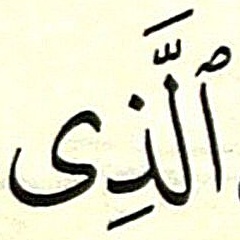 ٱلَّذِى